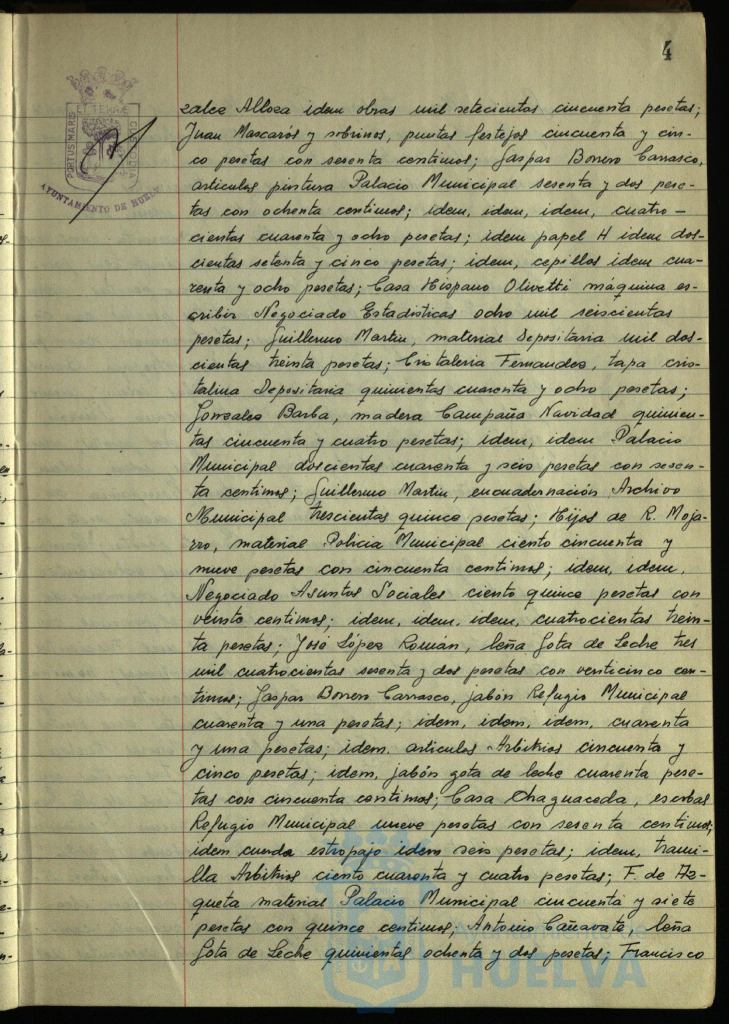 4
PORTUS MARIS
ET TERRÆ
CUSTODIA
AYUNTAMIENTO DE HUELVA
zalez Alloza idem obras mil setecientas cincuenta pesetas;
Juan Mascarós y sobrinos, puntas festejos cincuenta y cin-
co pesetas con sesenta centimos; Gaspar Borrero Carrasco,
articulos pintura Palacio Municipal sesenta y dos pese-
tas con ochenta centimos; idem, idem, idem, cuatro-
cientas cuarenta y ocho pesetas; idem papel H idem dos-
cientas setenta y cinco pesetas; idem, cepillos idem cua-
renta y ocho pesetas; Casa Hispano Olivetti máquina es-
cribir Negociado Estadisticas ocho mil seiscientas
pesetas; Guillermo Martin, material Depositaria mil dos-
cientas treinta pesetas; Cristaleria Fernandez, tapa cris-
talina Depositaria quinientas cuarenta y ocho pesetas;
Gonzalez Barba, madera Campaña Navidad quinien-
tas cincuenta y cuatro pesetas; idem, idem Palacio
Municipal doscientas cuarenta y seis pesetas con sesen-
ta centimos; Guillermo Martin, encuadernación Archivo
Municipal trescientas quince pesetas; Hijos de R. Moja-
rro, material Policia Municipal ciento cincuenta y
nueve pesetas con cincuenta centimos; idem, idem,
Negociado Asuntos Sociales ciento quince pesetas con
veinte centimos; idem, idem, idem, cuatrocientas trein-
ta pesetas; José López Román, leña Gota de Leche tres
mil cuatrocientas sesenta y dos pesetas con venticinco cen-
timos; Gaspar Borrero Carrasco, jabón Refugio Municipal
cuarenta y una pesetas; idem, idem, idem, cuarenta
y una pesetas; idem, articulos Arbitrios cincuenta y
cinco pesetas; idem, jabón gota de leche cuarenta pese-
tas con cincuenta centimos; Casa Chaguaceda, escobas
Refugio Municipal nueve pesetas con sesenta centimos;
idem cuerda estropajo idem seis pesetas; idem, trami-
lla Arbitrios ciento cuarenta y cuatro pesetas; F. de Az-
queta material Palacio Municipal cincuenta y siete
pesetas con quince centimos; Antonio Cañavate, leña
Gota de Leche quinientas ochenta y dos pesetas; Francisco
HUELVA